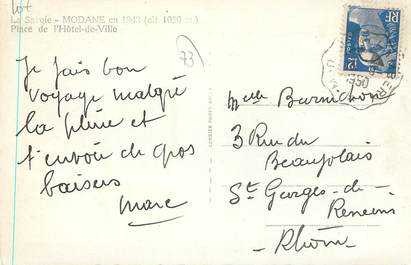 La Savoie - MODANE en 1943 (alt. 1080 m.)
Place de l'Hôtel-de-Ville
73
Je fais bon
voyage malgré
la pluie et
t'envoie de gros
baisers
Marc
Melle Burnichon
3 Rue du
Beaujolais
St Georges-de-
Reneins
-Rhône-